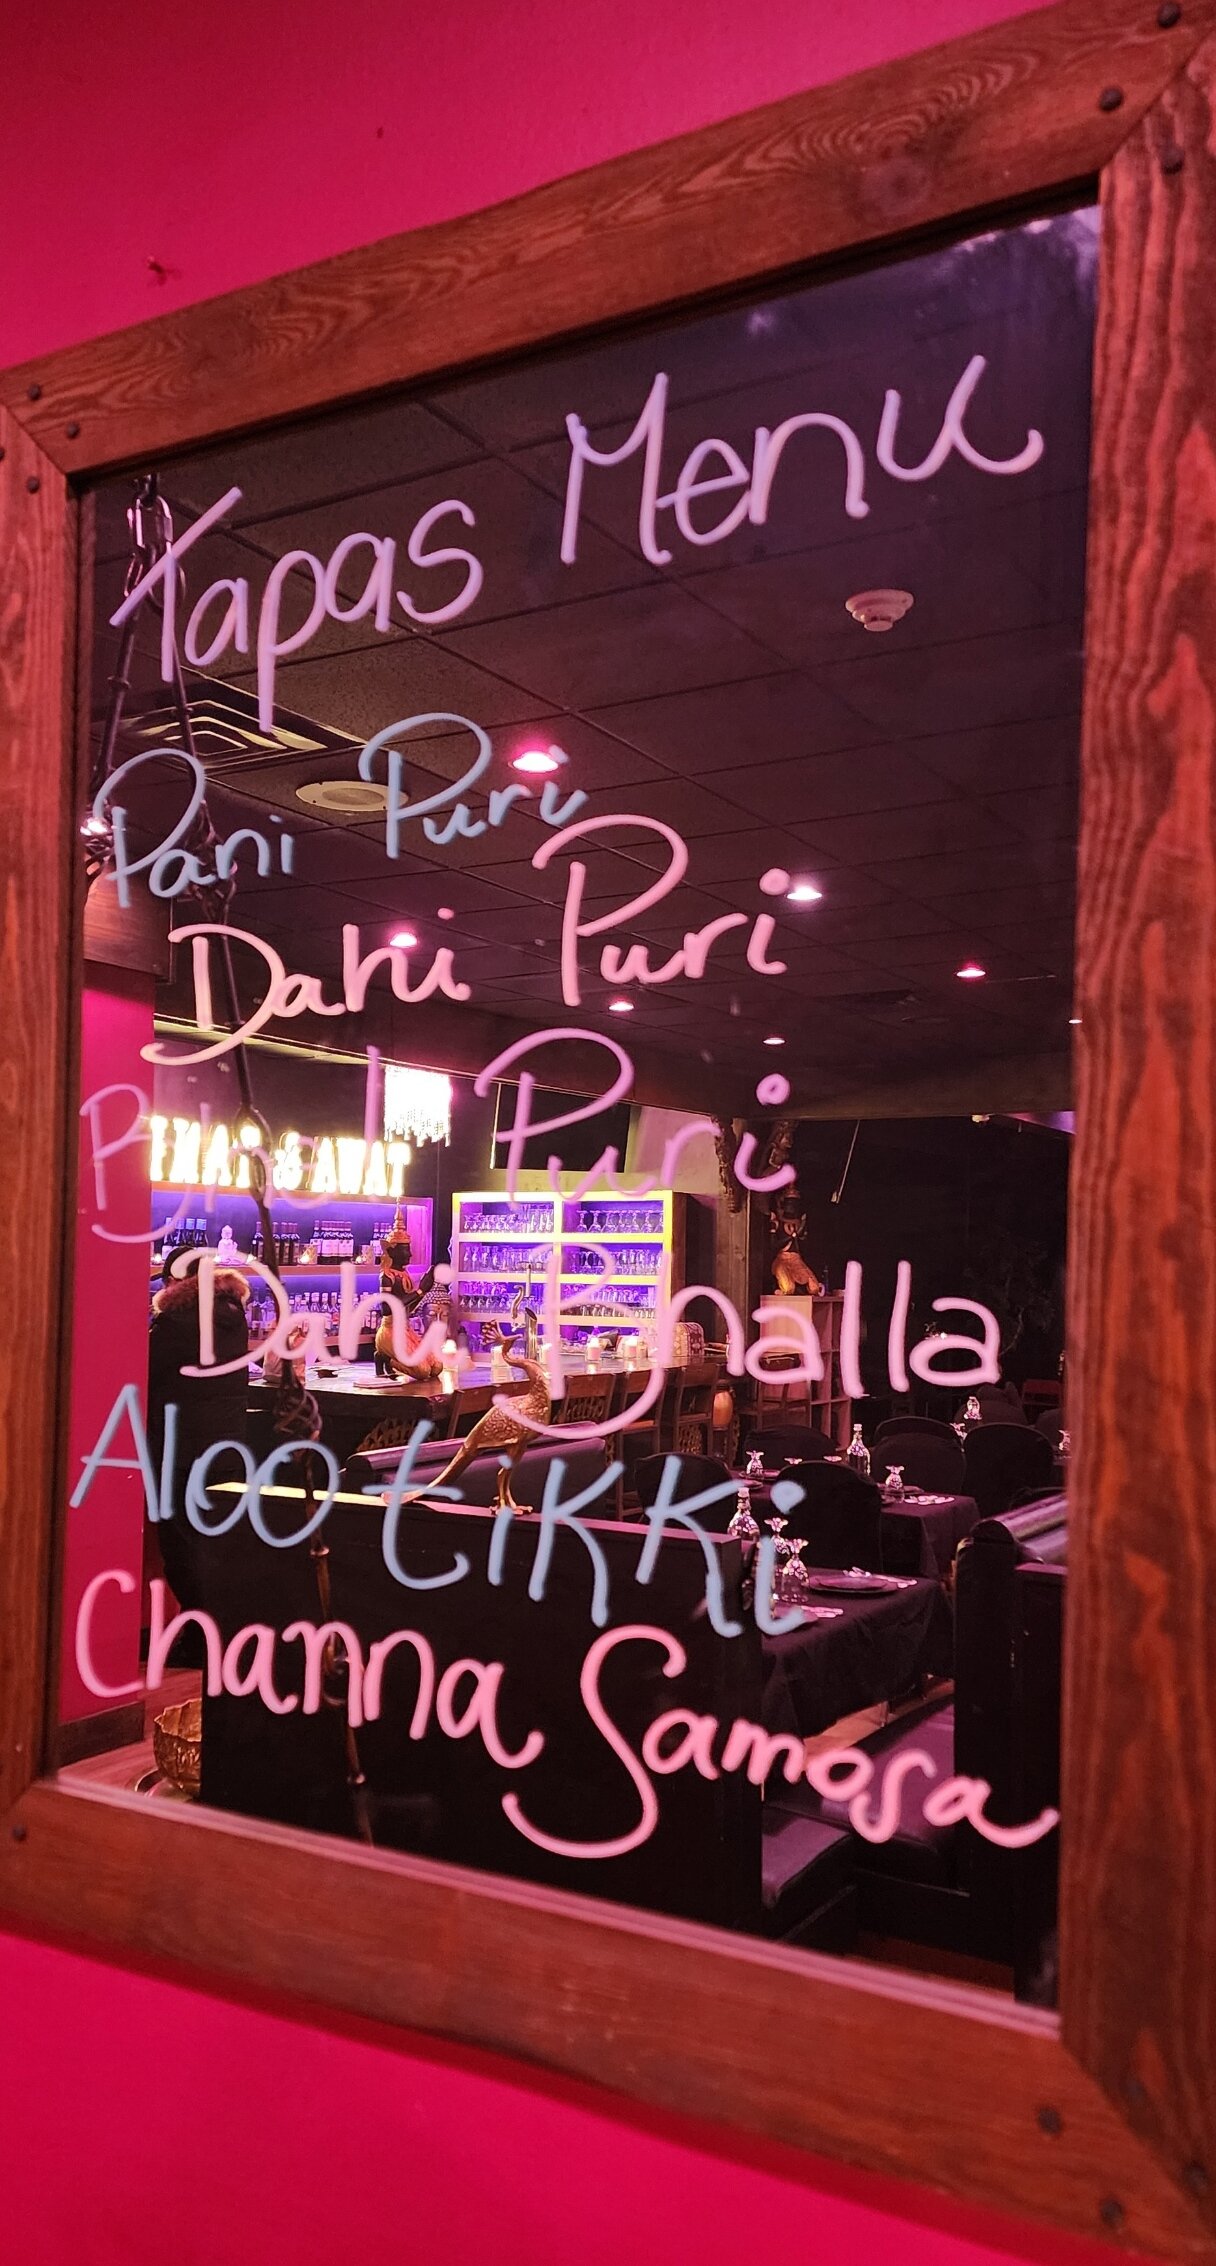 Tapas Menu
Pani Puri
Dahi Puri
Bhel Puri
Dahi Bhalla
Aloo tiKKi
Channa Samosa